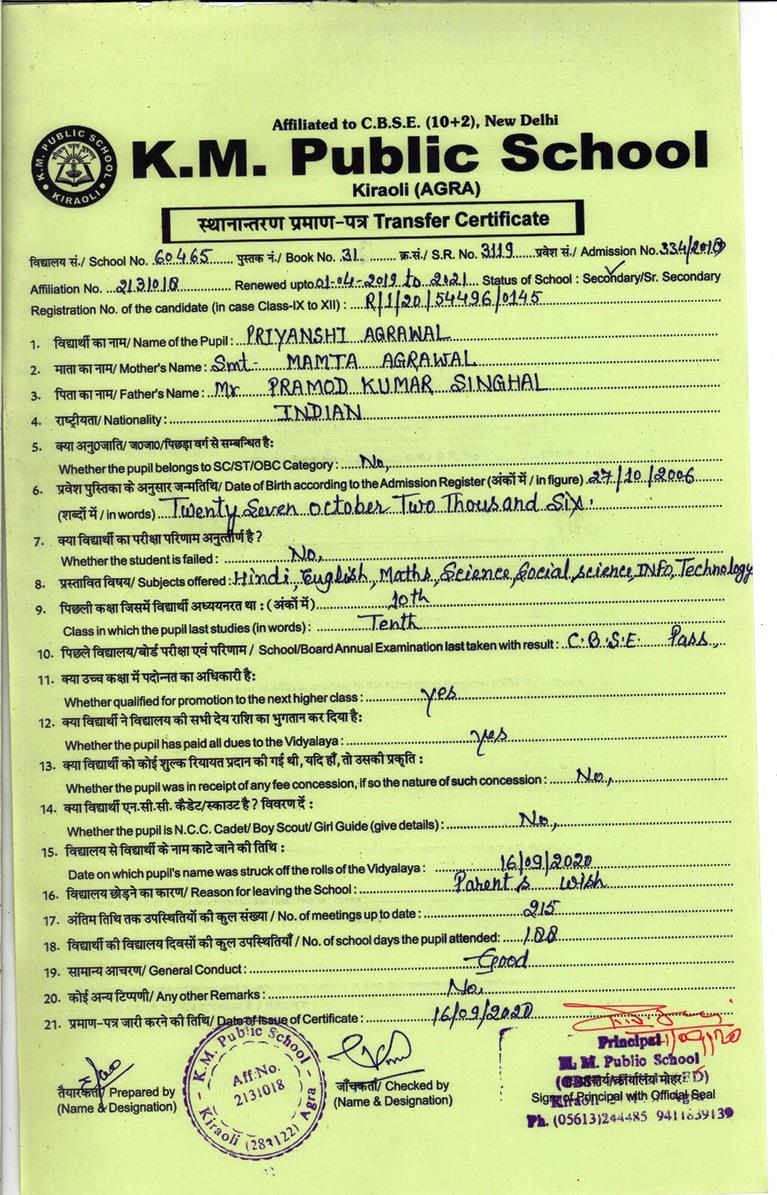 Affiliated to C.B.S.E. (10+2), New Delhi
K.M. PUBLIC SCHOOL
KIRAOLI
K.M. Public School
Kiraoli (AGRA)
स्थानान्तरण प्रमाण-पत्र Transfer Certificate
विद्यालय सं./ School No. 60465 पुस्तक नं./ Book No. 31 क्र.सं./ S.R. No. 3119 प्रवेश सं./ Admission No. 334/2019
Affiliation No. 2131018 Renewed upto 01-04-2019 to 2021 Status of School : Secondary/Sr. Secondary
Registration No. of the candidate (in case Class-IX to XII) : R/1/20/54496/0145
1. विद्यार्थी का नाम/ Name of the Pupil : PRIYANSHI AGRAWAL
2. माता का नाम/ Mother's Name : Smt- MAMTA AGRAWAL
3. पिता का नाम/ Father's Name : Mr PRAMOD KUMAR SINGHAL
4. राष्ट्रीयता/ Nationality : INDIAN
5. क्या अनु0जाति/ ज0जा0/पिछड़ा वर्ग से सम्बन्धित है:
Whether the pupil belongs to SC/ST/OBC Category : No,
6. प्रवेश पुस्तिका के अनुसार जन्मतिथि/ Date of Birth according to the Admission Register (अंकों में / in figure) 27/10/2006
(शब्दों में / in words) Twenty Seven october Two Thousand Six.
7. क्या विद्यार्थी का परीक्षा परिणाम अनुत्तीर्ण है ?
Whether the student is failed : No,
8. प्रस्तावित विषय/ Subjects offered : Hindi, English, Maths, Science, Social science, INFO, Technology
9. पिछली कक्षा जिसमें विद्यार्थी अध्ययनरत था : (अंकों में) 10th
Class in which the pupil last studies (in words) : Tenth
10. पिछले विद्यालय/बोर्ड परीक्षा एवं परिणाम / School/Board Annual Examination last taken with result : C.B.S.E. Pass,
11. क्या उच्च कक्षा में पदोन्नत का अधिकारी है:
Whether qualified for promotion to the next higher class : yes
12. क्या विद्यार्थी ने विद्यालय की सभी देय राशि का भुगतान कर दिया है:
Whether the pupil has paid all dues to the Vidyalaya : yes
13. क्या विद्यार्थी को कोई शुल्क रियायत प्रदान की गई थी, यदि हाँ, तो उसकी प्रकृति :
Whether the pupil was in receipt of any fee concession, if so the nature of such concession : No,
14. क्या विद्यार्थी एन.सी.सी. कैडेट/स्काउट है ? विवरण दें :
Whether the pupil is N.C.C. Cadet/ Boy Scout/ Girl Guide (give details) : No,
15. विद्यालय से विद्यार्थी के नाम काटे जाने की तिथि :
Date on which pupil's name was struck off the rolls of the Vidyalaya : 16/09/2020
16. विद्यालय छोड़ने का कारण/ Reason for leaving the School : Parent's wish
17. अंतिम तिथि तक उपस्थितियों की कुल संख्या / No. of meetings up to date : 215
18. विद्यार्थी की विद्यालय दिवसों की कुल उपस्थितियाँ / No. of school days the pupil attended: 188
19. सामान्य आचरण/ General Conduct : Good
20. कोई अन्य टिप्पणी/ Any other Remarks : No,
21. प्रमाण-पत्र जारी करने की तिथि/ Date of Issue of Certificate : 16/09/2020
K.M. Public School
Aff. No.
2131018
Kiraoli (283122) Agra
तैयारकर्ता/ Prepared by
(Name & Designation)
जाँचकर्ता/ Checked by
(Name & Designation)
Principal
K. M. Public School
Sign of Principal with Official Seal
Ph. (05613)244485 9411839139